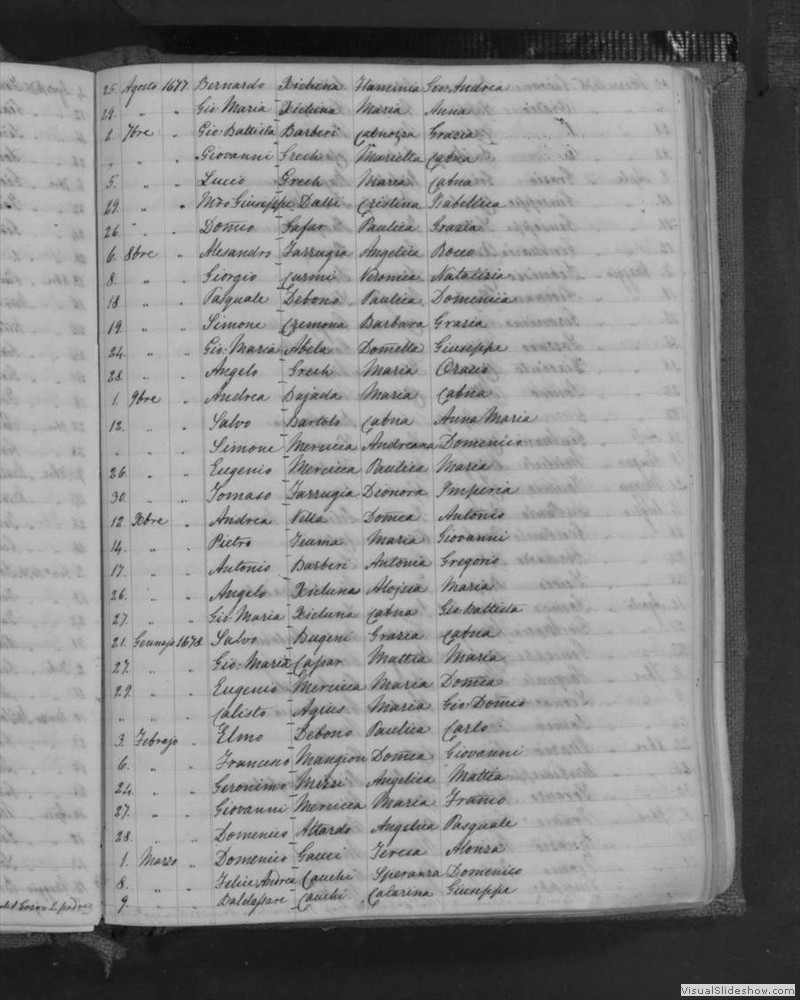 25. Agosto 1677 Bernardo Xicluna Flaminia Gio: Andrea
29. " " Gio: Maria Xicluna Maria Anna
2. 7bre " Gio: Battista Barberi Catnozza Grazia
" " " Giovanni Grech Marietta Catna
5. " " Lucio Grech Maria Catna
29. " " Giuseppe Dalli Cristina Isabellica
26. " " Domco Gafar Paulica Grazia
6. 8bre " Alesandro Farrugia Angelica Rocco
8. " " Giorgio Curmi Veronica Natalizia
18. " " Pasquale Debono Paulica Domenica
19. " " Simone Cremona Barbara Grazia
24. " " Gio: Maria Abela Dometta Giuseppe
28. " " Angelo Grech Maria Orazio
1. 9bre " Andrea Bajada Maria Catna
12. " " Salvo Bartolo Catna Anna Maria
" " " Simone Mercieca Andreana Domenico
26. " " Eugenio Mercieca Paulica Maria
30. " " Tomaso Farrugia Dionora Imperia
12. Xbre " Andrea Vella Domca Antonio
14. " " Pietro Zeuma Maria Giovanni
17. " " Antonio Barberi Antonia Gregorio
26. " " Angelo Xicluna Alojsia Maria
27. " " Gio: Maria Xicluna Catna Gio Battista
21. Gennajo 1678. Salvo Bugeni Grazia Catna
27. " " Gio: Maria Capar Mattia Maria
29. " " Eugenio Mercieca Maria Domca
" " " Calisto Agius Maria Gio: Domco
3. Febrajo " Elmo Debono Paulica Carlo
6. " " Francesco Mangion Domca Giovanni
24. " " Geronimo Mizzi Angelica Mattia
27. " " Giovanni Mercieca Maria Franco
28. " " Domenico Attardo Angelica Pasquale
1. Marzo " Domenico Gauci Teresa Alonza
8. " " Felice Andrea Cauchi Speranza Domenico
9. " " Baldassare Cauchi Catarina Giuseppe
VisualSlideshow.com